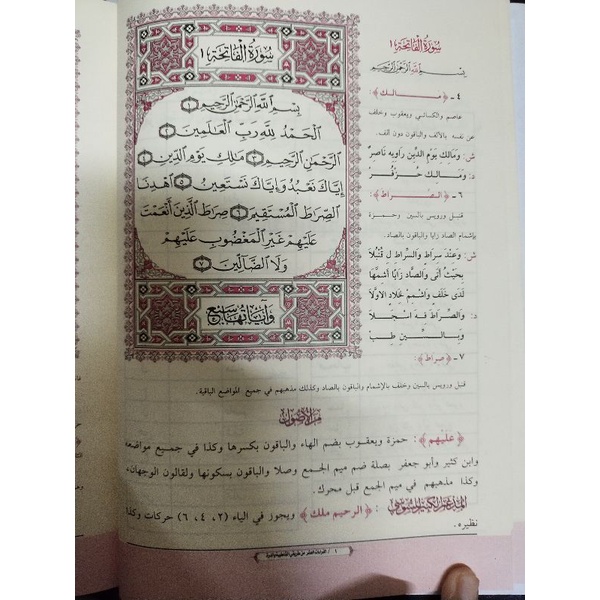 سُورَةُ الفَاتِحَةِ ١
بِسْمِ اللَّهِ الرَّحْمَٰنِ الرَّحِيمِ ١
الْحَمْدُ لِلَّهِ رَبِّ الْعَالَمِينَ ٢
الرَّحْمَٰنِ الرَّحِيمِ ٣ مَلِكِ يَوْمِ الدِّينِ ٤
إِيَّاكَ نَعْبُدُ وَإِيَّاكَ نَسْتَعِينُ ٥ اهْدِنَا
الصِّرَاطَ الْمُسْتَقِيمَ ٦ صِرَاطَ الَّذِينَ أَنْعَمْتَ
عَلَيْهِمْ غَيْرِ الْمَغْضُوبِ عَلَيْهِمْ
وَلَا الضَّالِّينَ ٧
وَآيَاتُهَا سَبْعٌ
سُورَةُ الفَاتِحَةِ ١
بِسْمِ اللَّهِ الرَّحْمَٰنِ الرَّحِيمِ
٤ - ﴿مَالِكِ﴾ :
عاصم والكسائي ويعقوب وخلف
عن نفسه بالألف والباقون دون ألف.
ش: وَمَالِكِ يَوْمِ الدِّينِ رَاوِيهِ نَاصِرٌ
د: وَمَالِكِ حُزْ فُزْ
٦ - ﴿الصِّرَاطَ﴾ :
قنبل ورويس بالسين وحمزة
بإشمام الصاد زايا والباقون بالصاد.
ش: وَعِنْدَ سِرَاطِ وَالسِّرَاطَ لِ قُنْبُلَا
بِحَيْثُ أَتَى وَالصَّادُ زَايًا أَشِمَّهَا
لَدَى خَلَفٍ وَاشْمِمْ لِخَلَّادِ الَاوَّلَا
د: وَالصِّرَاطَ فِهْ اسْجِلَا
وَبِالسِّينِ طِبْ
٧ - ﴿صِرَاطَ﴾ :
قنبل ورويس بالسين وخلف بالإشمام والباقون بالصاد وكذلك مذهبهم في جميع المواضع الباقية.
مِنَ الأُصُولِ
﴿عَلَيْهِمْ﴾ : حمزة ويعقوب بضم الهاء والباقون بكسرها وكذا في جميع مواضعه
وابن كثير وأبو جعفر بصلة ضم ميم الجمع وصلا والباقون بسكونها ولقالون الوجهان،
وكذا مذهبهم في ميم الجمع قبل محرك.
المدغم الكبير للسوسي : ﴿الرحيم ملك﴾ ويجوز في الياء (٢، ٤، ٦) حركات وكذا
نظيره.
١ / القراءات العشر من طريقي الشاطبية والدرة